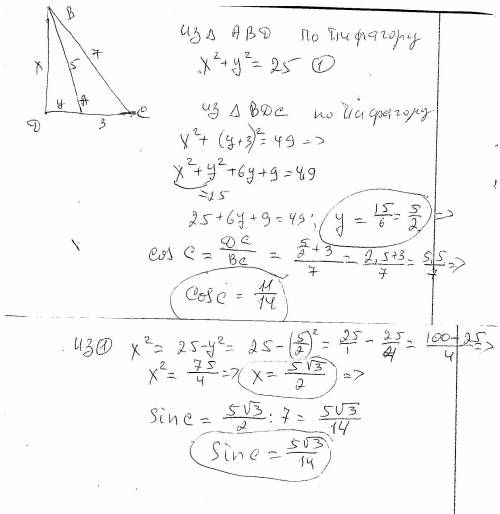 B
x
5
7
y
A
D
3
C
Из Δ ABD по Пифагору
x² + y² = 25 ①
Из Δ BDC по Пифагору
x² + (y+3)² = 49 =>
x² + y² + 6y + 9 = 49
=25
25 + 6y + 9 = 49; y = 15/6 = 5/2 =>
cos C = DC/BC = (5/2 + 3)/7 = (2,5+3)/7 = 5,5/7 =>
cos C = 11/14
Из ① x² = 25 - y² = 25 - (5/2)² = 25/1 - 25/4 = (100-25)/4 =>
x² = 75/4 => x = 5√3/2 =>
Sin C = 5√3/2 : 7 = 5√3/14
Sin C = 5√3/14